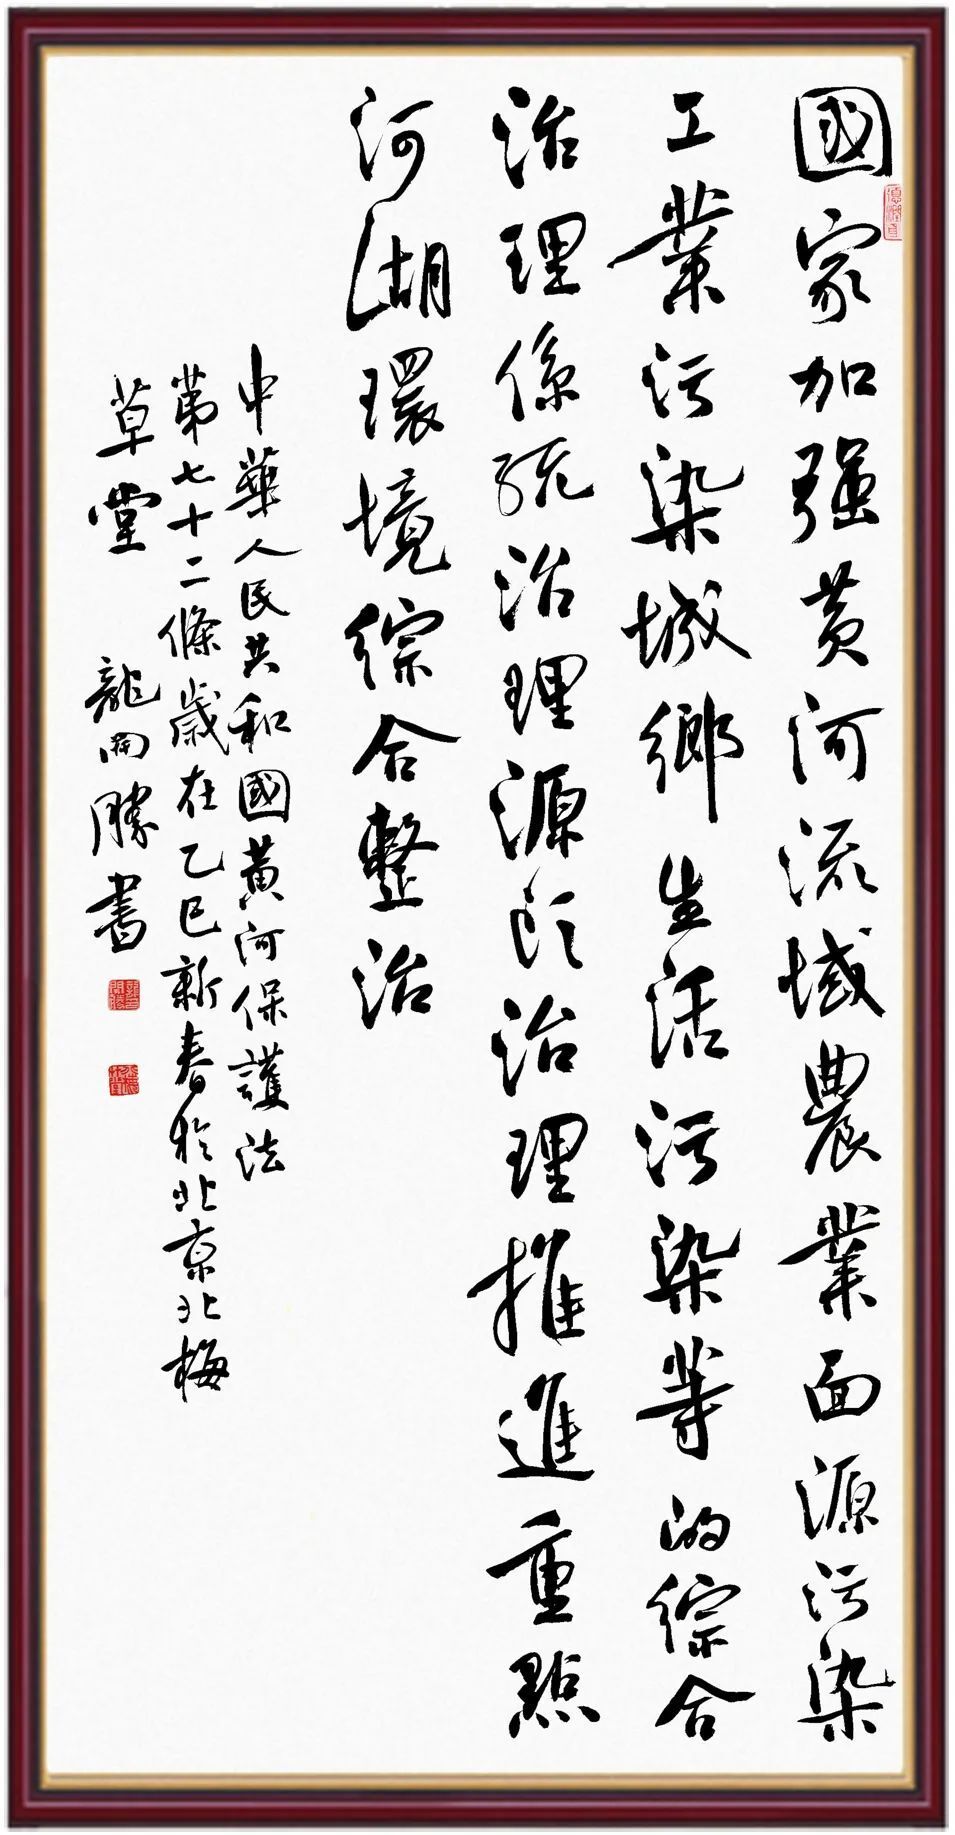 國家加强黄河流域農業面源污染
工業污染城鄉生活污染等的綜合
治理係统治理源头治理推進重點
河湖環境綜合整治
中華人民共和國黄河保護法
第七十二條歲在乙巳新春於北京北梅
草堂 龍開勝書